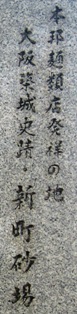 本邦麺類店発祥の地
大阪築城史蹟・新町砂場